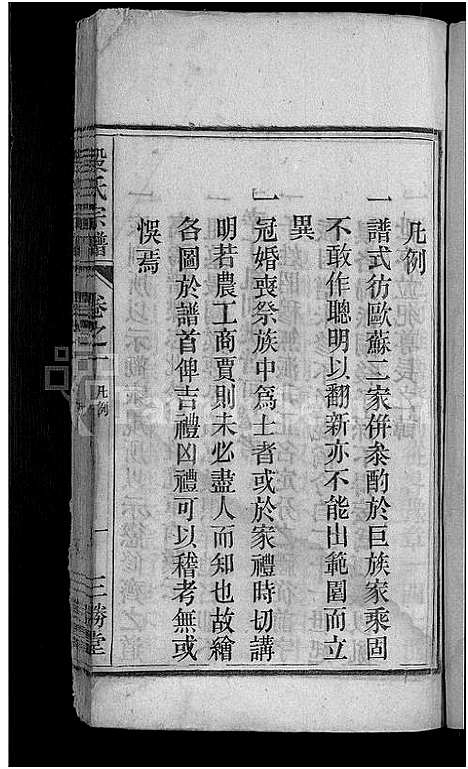 凡例
一譜式彷歐蘇三家併叅酌於巨族家乘固
不敢作聰明以翻新亦不能出範圍而立
異
一冠婚喪祭族中為士者或於家禮時切講
明若農工商賈則未必盡人而知也故繪
各圖於譜首俾吉禮凶禮可以稽考無或
悞焉
段氏宗譜
卷之一
凡例
一
三勝堂